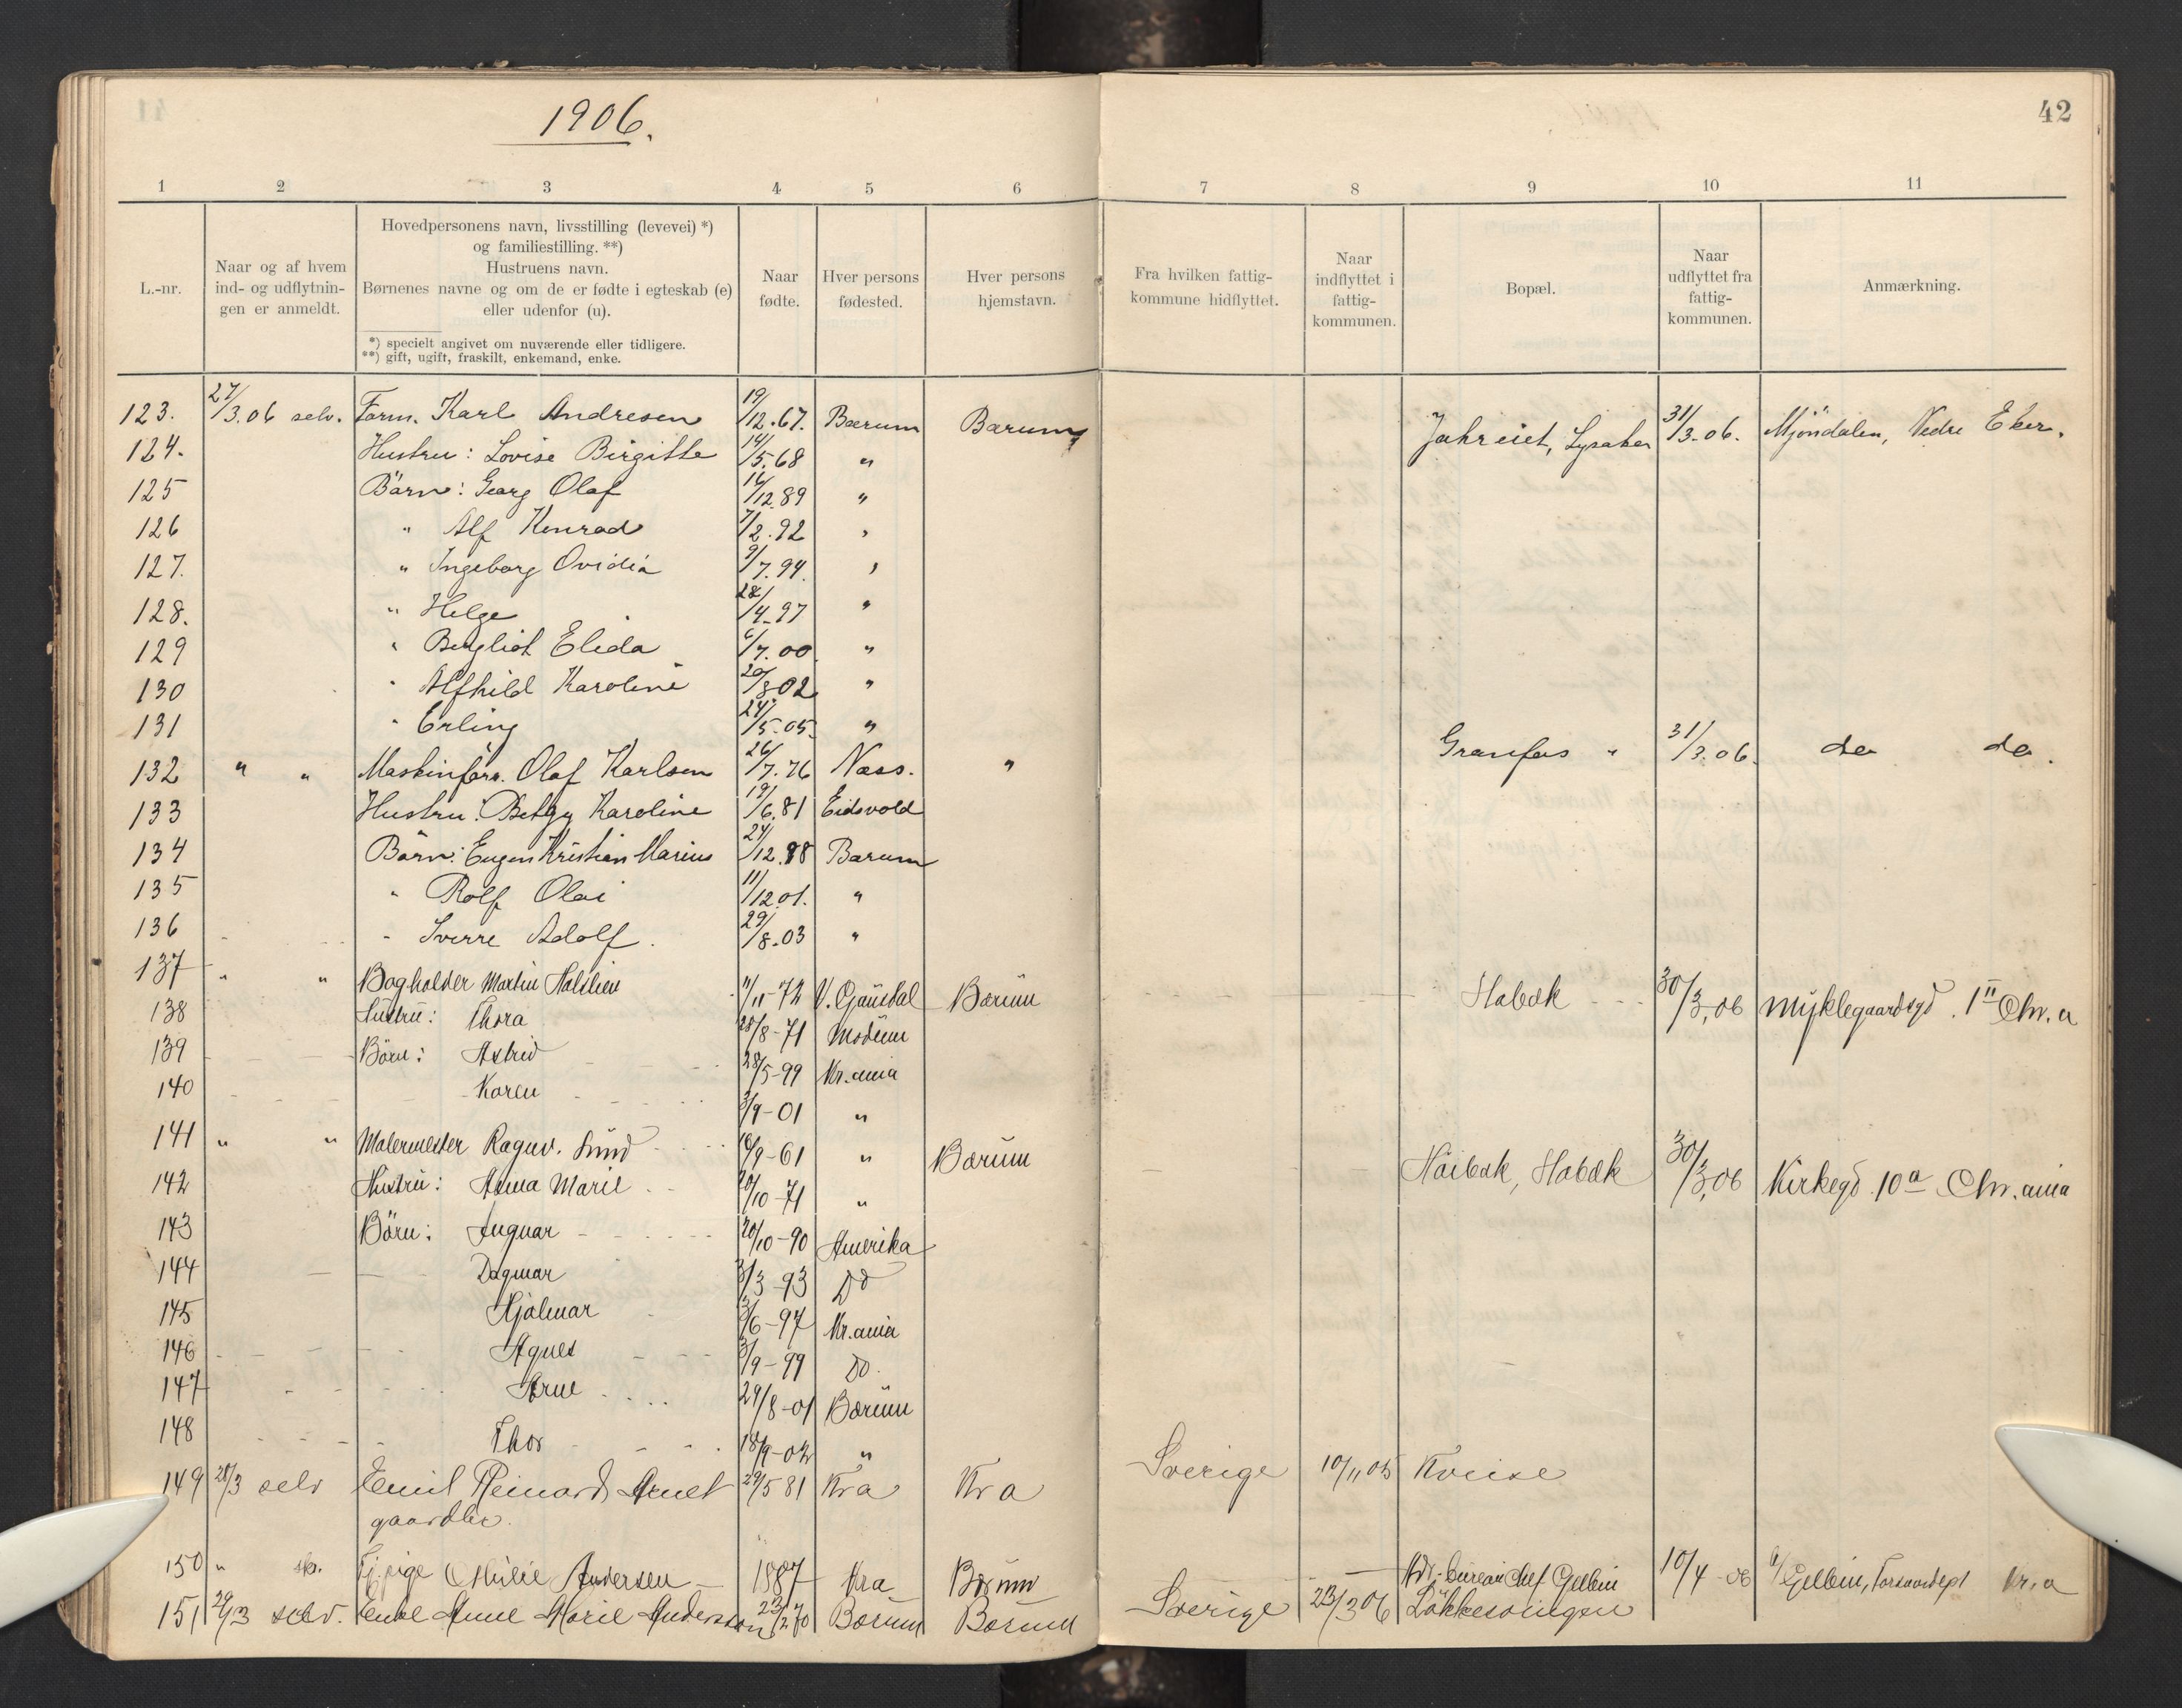 1906.
42
1 2 3 4 5 6 7 8 9 10 11
L.-nr.
Naar og af hvem
ind- og udflytnin-
gen er anmeldt.
Hovedpersonens navn, livsstilling (levevei) *)
og familiestilling. **)
Hustruens navn.
Børnenes navne og om de er fødte i egteskab (e)
eller udenfor (u).
*) specielt angivet om nuværende eller tidligere.
**) gift, ugift, fraskilt, enkemand, enke.
Naar
fødte.
Hver persons
fødested.
Hver persons
hjemstavn.
Fra hvilken fattig-
kommune hidflyttet.
Naar
indflyttet i
fattig-
kommunen.
Bopæl.
Naar
udflyttet fra
fattig-
kommunen.
Anmærkning.
123. 27/3.06 selv. Form. Karl Andresen 19/12.67. Bærum Bærum Jahreiet, Lysaker 31/3-06. Mjöndalen, Nedre Eker.
124. Hustru: Lovise Birgitte 14/5.68 "
125 Börn: Georg Olaf 16/12.89 "
126 " Alf Konrad 7/2.92 "
127. " Ingeborg Ovidia 9/7.94. "
128. " Helge 28/4-97 "
129 " Bergliot Elida 6/7.00 "
130 " Alfhild Karoline 20/8-02 "
131 " Erling 24/5-05. "
132 " " Maskinförr. Olaf Karlsen 26/7.76 Næss. " Granfos " 31/3.06. do do.
133 Hustru: Betzy Karoline 19/6.81 Eidsvold
134 Börn: Eugen Kristian Marius 27/12.98 Bærum
135 " Rolf Olai 11/12.01. "
136 " Sverre Adolf. 29/8.03 "
137 " " Bogholder Martin 11/11-72 V. Gausdal Bærum Stabæk 30/3.06 Myklegaardsgd. 1 II Chr.a
138 Hustru: Thora 28/8-71 Modum
139 Börn: Astrid 28/5-99 Kr.ania
140 Karen 3/9-01 "
141 " " Malermester Ragnv. Lund 16/9-61 " Bærum Höibak, Stabæk 30/3.06 Kirkegd. 10 a Chr.ania
142 Hustru: Anna Marie 20/10-71 "
143 Börn: Ingvar 20/10-90 Amerika
144 Dagmar 3/3-93 Do
145 Hjalmar 3/6-97 Kr.ania
146 Agnes 3/9-99 Do.
147 Arne 29/8-01 Bærum
148 Thor 18/9-02 "
149 28/3 selv Emil Reinard Arnet 29/5 81 Kra Kra Sverige 10/11 05 Kveise
gaardbr.
150 " skr. Tj.pige Milie Andersen 1887 Kra Bærum Adr. Bureauchef Gelbin 10/4-06 Gelbin, Forsvarsdept Kr.a
151 29/3 selv. Enke Anne Marie Andersson 23/12 70 Bærum Bærum Sverige 23/3 06 Lökkesvingen